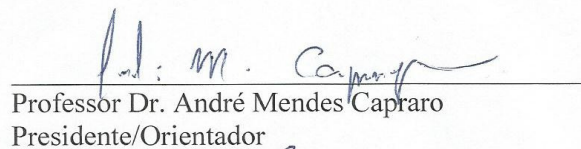 Professor Dr. André Mendes Capraro
Presidente/Orientador